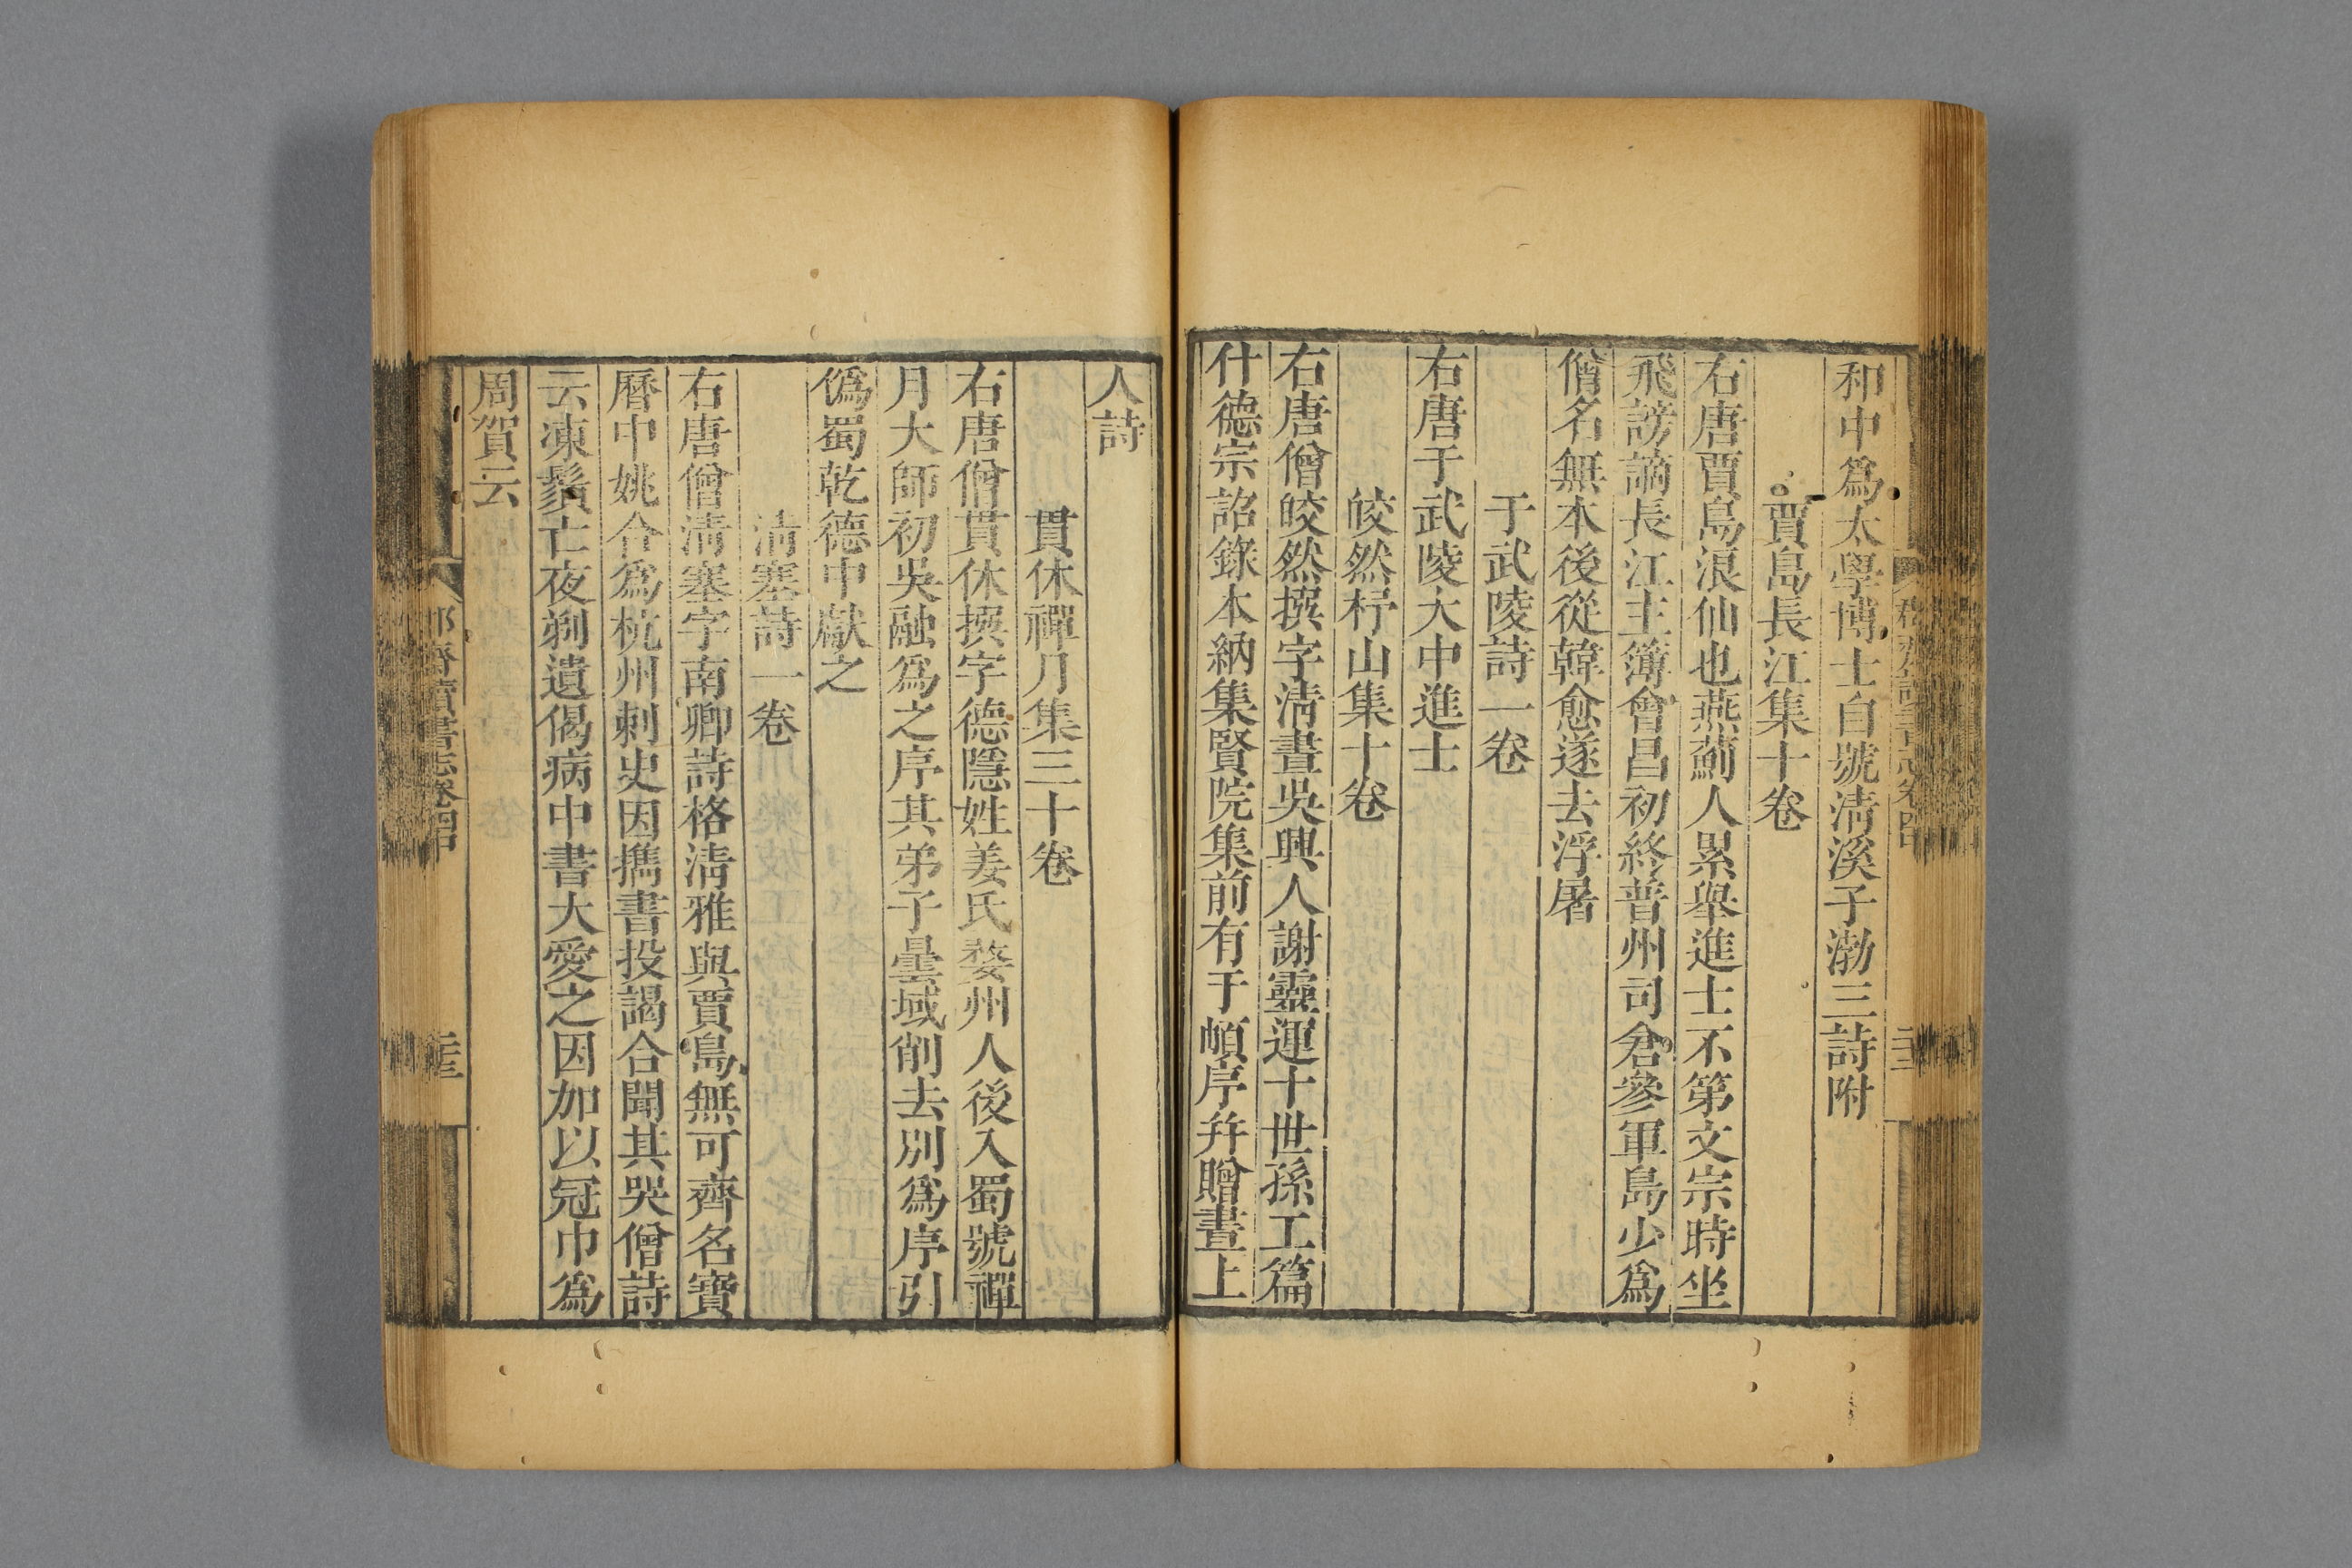 和中爲太學博士自號淸溪子渤三詩附
賈島長江集十卷
右唐賈島浪仙也燕薊人累舉進士不第文宗時坐
飛謗謫長江主簿會昌初終普州司倉參軍島少爲
僧名無本後從韓愈遂去浮屠
于武陵詩一卷
右唐于武陵大中進士
皎然杼山集十卷
右唐僧皎然撰字淸晝吳興人謝靈運十世孫工篇
什德宗詔錄本納集賢院集前有于頔序幷贈晝上
人詩
貫休禪月集三十卷
右唐僧貫休撰字德隱姓姜氏婺州人後入蜀號禪
月大師初吳融爲之序其弟子曇域削去別爲序引
僞蜀乾德中獻之
淸塞詩一卷
右唐僧淸塞字南卿詩格淸雅與賈島無可齊名寶
曆中姚合爲杭州刺史因攜書投謁合聞其哭僧詩
云凍鬚亡夜剃遺偈病中書大愛之因加以冠巾爲
周賀云